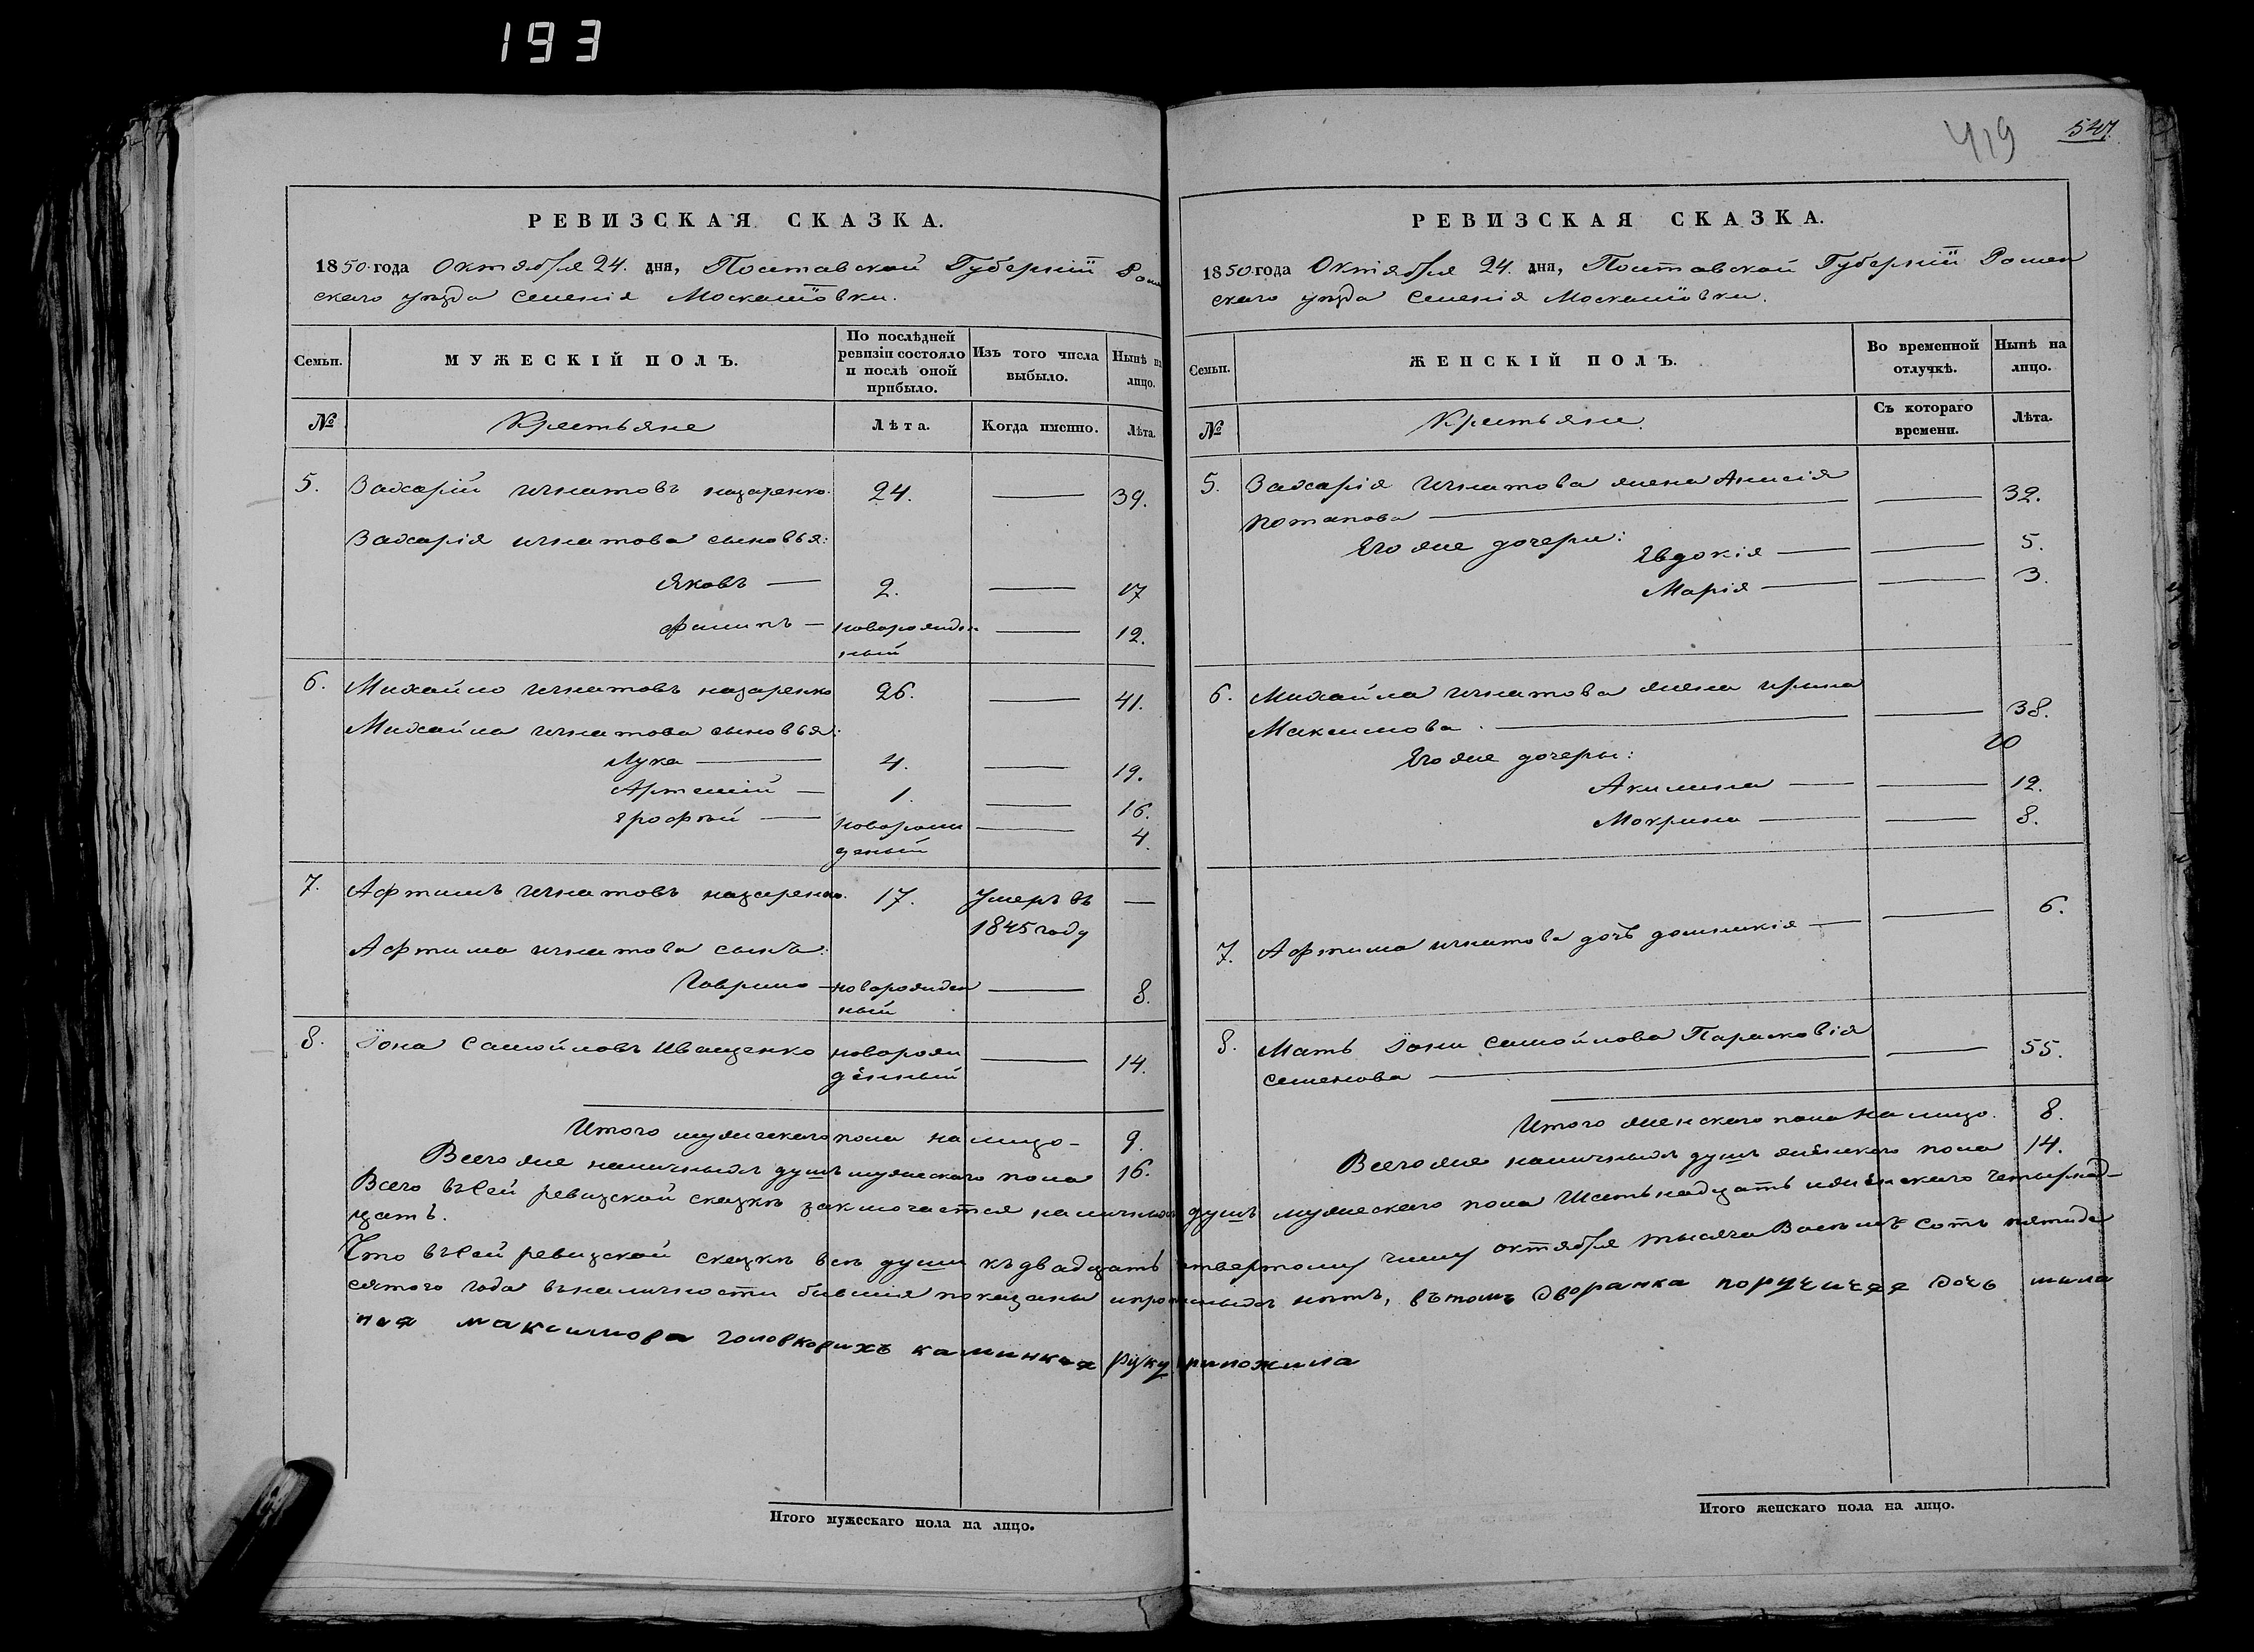 193
419
547.
РЕВИЗСКАЯ СКАЗКА.
1850 года Октября 24. дня, Полтавской Губернїи Ромен
скаго уѣзда Селенія Москалївки.
Семьи.
МУЖЕСКІЙ ПОЛЪ.
По послѣдней ревизіи состояло и послѣ оной прибыло.
Изъ того числа выбыло.
Нынѣ на лицо.
№
Крестьяне
Лѣта.
Когда именно.
Лѣта.
5. Захарій игнатовъ назаренко. 24. — 39.
Захарія игнатова сыновья:
Яковъ — 2. — 17
Филипъ — новорожден — 12.
ный
6. Михайло игнатовъ назаренко 26. — 41.
Михайла игнатова сыновья:
Лука — 4. — 19.
Артемій — 1. — 16.
Ярофѣй — новорож — 4.
деный
7. Афтимъ игнатовъ назаренко. 17. Умеръ въ —
1845 году
Афтима игнатова сынъ:
Гаврило — новорожден — 8.
ный
8. Їона Самойловъ Иващенко новорож — 14.
дённый
Итого мужескаго пола на лицо — 9.
Всего же наличныхъ душъ мужескаго пола 16.
РЕВИЗСКАЯ СКАЗКА.
1850 года Октября 24. дня, Полтавской Губернїи Ромен
скаго уѣзда Селенія Москалївки.
Семьи.
ЖЕНСКІЙ ПОЛЪ.
Во временной отлучкѣ.
Нынѣ на лицо.
№
Крестьяне.
Съ котораго времени.
Лѣта.
5. Захарія Игнатова жена Анисія
потапова — — 32.
Его же дочери:
Евдокія — — 5.
Марія — — 3.
6. Михайла игнатова жена ирина
Максимова — — 38.
Его же дочеры: 20
Акилина — — 12.
Мокрина — — 8.
7. Афтима игнатова дочь домникія — — 6.
8. Мать Їоны Самойлова Парасковія
семенова — — 55.
Итого женскаго пола на лицо. 8.
Всего же наличныхъ душъ женскаго пола 14.
Всего въ сей ревизской сказкѣ заключается наличныхъ душъ мужескаго пола Шестьнадцать иженскаго четырнад-
цать.
Что въ сей ревизской сказкѣ всѣ души къ двадцать четвертому числу октября тысяча Восемь Сотъ пятиде
сятого года въ наличности бывшия показаны ипрописныхъ нѣтъ, вътомъ дворанка поручичъя дочь мила
ния максимова головковихъ калинкая руку приложила
Итого мужескаго пола на лицо.
Итого женскаго пола на лицо.